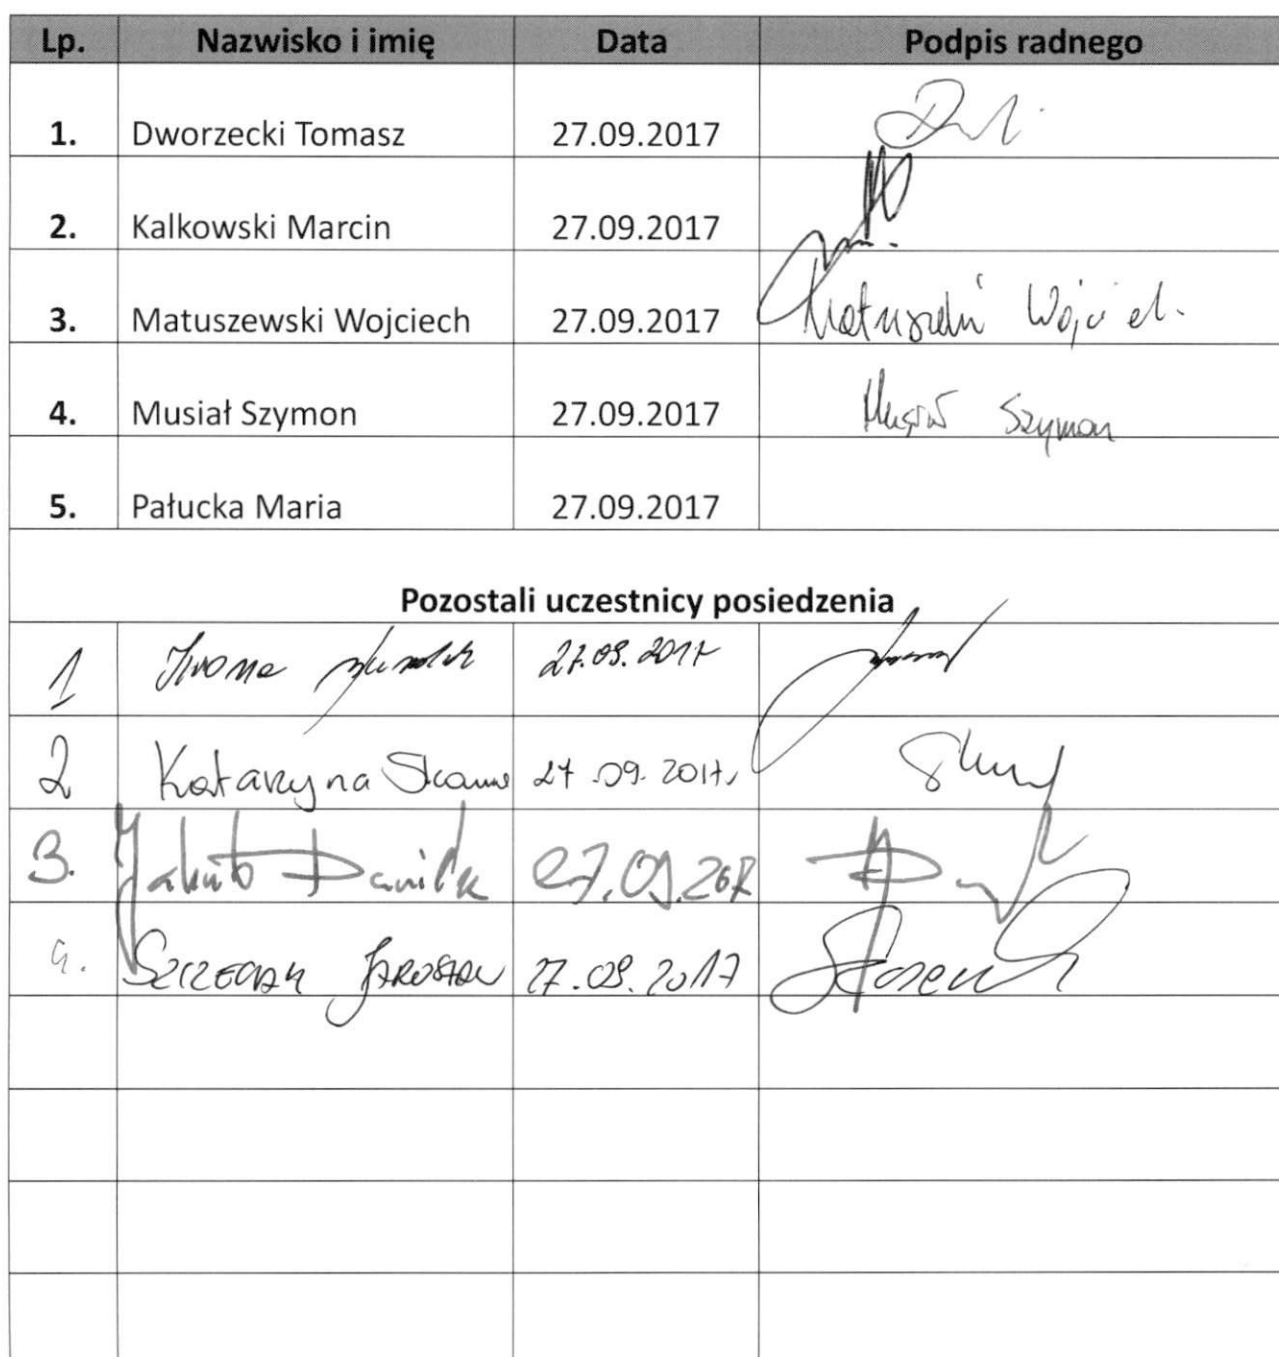 Lp. Nazwisko i imię Data Podpis radnego
1. Dworzecki Tomasz 27.09.2017
2. Kalkowski Marcin 27.09.2017
3. Matuszewski Wojciech 27.09.2017
4. Musiał Szymon 27.09.2017 Szymon
5. Pałucka Maria 27.09.2017
Pozostali uczestnicy posiedzenia
1 Iwona 27.09.2017
2 Katarzyna 27.09.2017
3. Jakub 27.09.2017
4. 27.09.2017